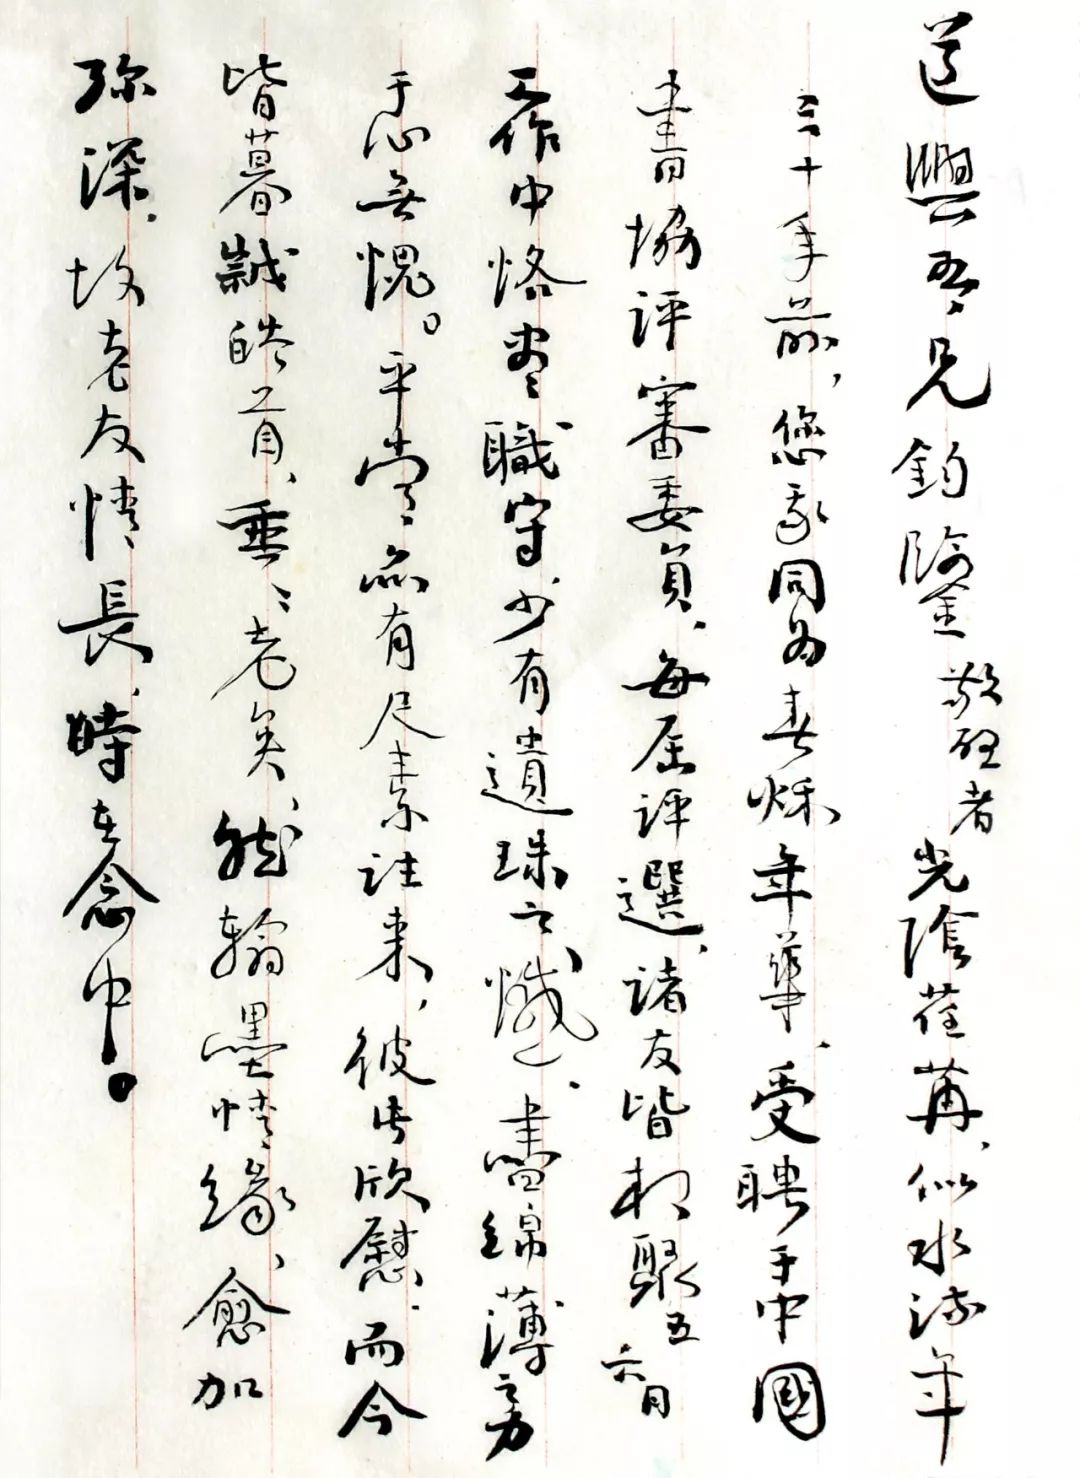 道興吾兄鈞鑒敬啓者光陰荏苒，似水流年
三十年前，您我同为春秋年華，受聘于中國
書協評審委員，每屆評選，諸友皆相聚五六月
工作中恪盡職守少有遺珠之憾，盡綿薄之力
于心無愧。平常亦有尺素往来，彼此欣慰，而今
皆暮誠皓首，垂垂老矣，然翰墨情緣，愈加
弥深，故老友情長，時在念中。